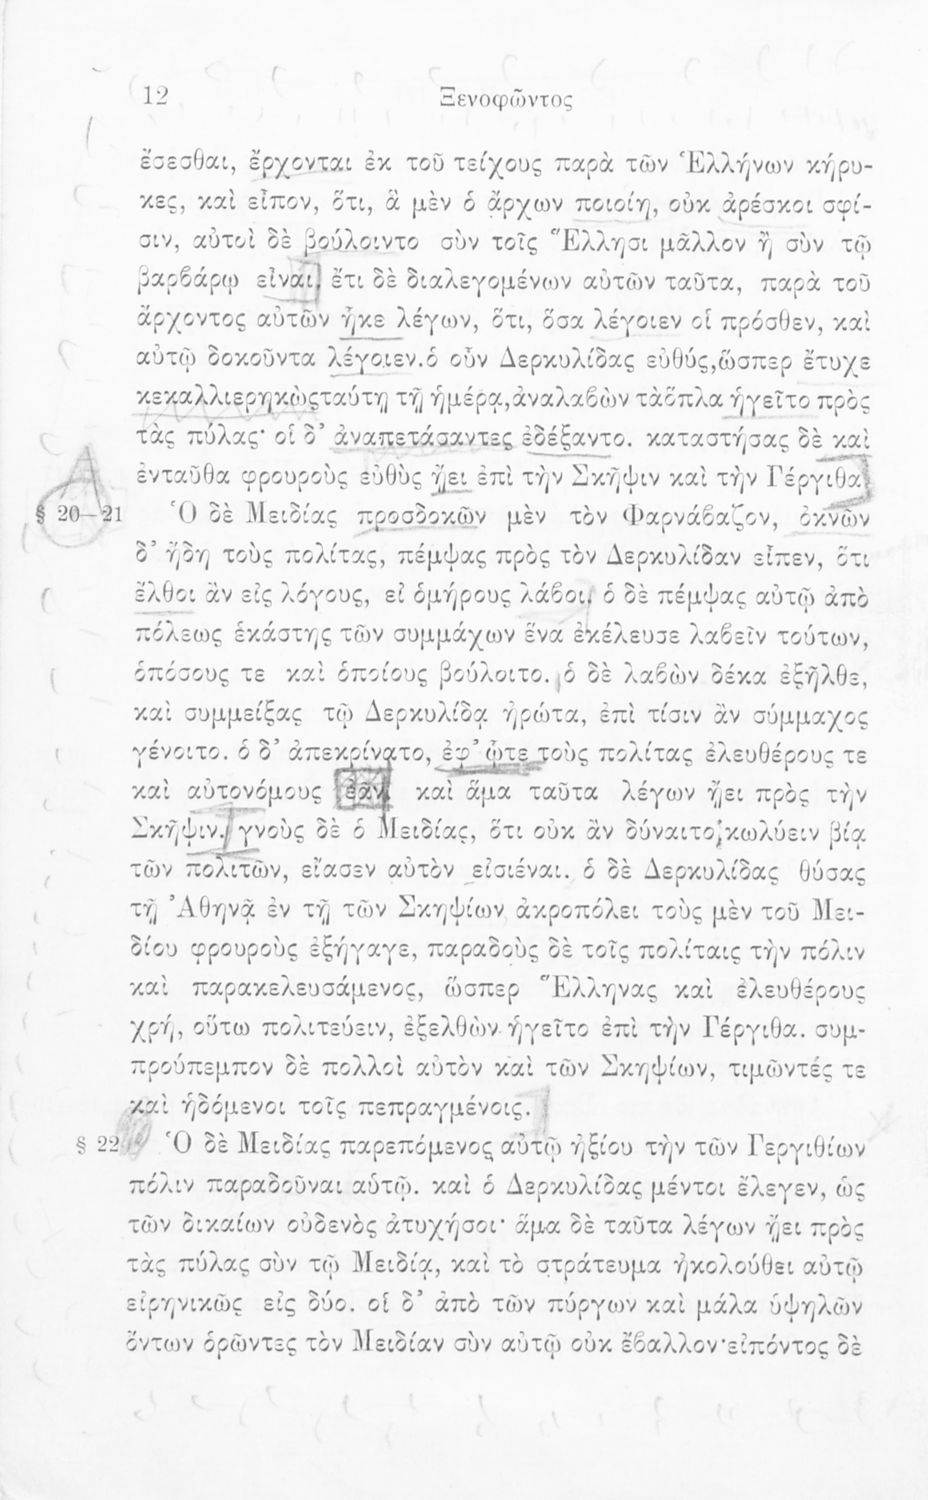 12 Ξενοφῶντος
ἔσεσθαι, ἔρχονται ἐκ τοῦ τείχους παρὰ τῶν Ἑλλήνων κήρυ-
κες, καὶ εἶπον, ὅτι, ἃ μὲν ὁ ἄρχων ποιοίη, οὐκ ἀρέσκοι σφί-
σιν, αὐτοὶ δὲ βούλοιντο σὺν τοῖς Ἕλλησι μᾶλλον ἢ σὺν τῷ
βαρβάρῳ εἶναι. ἔτι δὲ διαλεγομένων αὐτῶν ταῦτα, παρὰ τοῦ
ἄρχοντος αὐτῶν ἧκε λέγων, ὅτι, ὅσα λέγοιεν οἱ πρόσθεν, καὶ
αὐτῷ δοκοῦντα λέγοιεν. ὁ οὖν Δερκυλίδας εὐθύς, ὥσπερ ἔτυχε
κεκαλλιερηκὼς ταύτῃ τῇ ἡμέρᾳ, ἀναλαβὼν τὰ ὅπλα ἡγεῖτο πρὸς
τὰς πύλας· οἱ δ' ἀναπετάσαντες ἐδέξαντο. καταστήσας δὲ καὶ
ἐνταῦθα φρουροὺς εὐθὺς ᾔει ἐπὶ τὴν Σκῆψιν καὶ τὴν Γέργιθα.
§ 20—21 Ὁ δὲ Μειδίας προσδοκῶν μὲν τὸν Φαρνάβαζον, ὀκνῶν
δ' ἤδη τοὺς πολίτας, πέμψας πρὸς τὸν Δερκυλίδαν εἶπεν, ὅτι
ἔλθοι ἂν εἰς λόγους, εἰ ὁμήρους λάβοι. ὁ δὲ πέμψας αὐτῷ ἀπὸ
πόλεως ἑκάστης τῶν συμμάχων ἕνα ἐκέλευσε λαβεῖν τούτων,
ὁπόσους τε καὶ ὁποίους βούλοιτο. ὁ δὲ λαβὼν δέκα ἐξῆλθε,
καὶ συμμείξας τῷ Δερκυλίδᾳ ἠρώτα, ἐπὶ τίσιν ἂν σύμμαχος
γένοιτο. ὁ δ' ἀπεκρίνατο, ἐφ' ᾧτε τοὺς πολίτας ἐλευθέρους τε
καὶ αὐτονόμους ἐᾶν. καὶ ἅμα ταῦτα λέγων ᾔει πρὸς τὴν
Σκῆψιν. γνοὺς δὲ ὁ Μειδίας, ὅτι οὐκ ἂν δύναιτο κωλύειν βίᾳ
τῶν πολιτῶν, εἴασεν αὐτὸν εἰσιέναι. ὁ δὲ Δερκυλίδας θύσας
τῇ Ἀθηνᾷ ἐν τῇ τῶν Σκηψίων ἀκροπόλει τοὺς μὲν τοῦ Μει-
δίου φρουροὺς ἐξήγαγε, παραδοὺς δὲ τοῖς πολίταις τὴν πόλιν
καὶ παρακελευσάμενος, ὥσπερ Ἕλληνας καὶ ἐλευθέρους
χρή, οὕτω πολιτεύειν, ἐξελθὼν ἡγεῖτο ἐπὶ τὴν Γέργιθα. συμ-
προύπεμπον δὲ πολλοὶ αὐτὸν καὶ τῶν Σκηψίων, τιμῶντές τε
καὶ ἡδόμενοι τοῖς πεπραγμένοις.
§ 22 Ὁ δὲ Μειδίας παρεπόμενος αὐτῷ ἠξίου τὴν τῶν Γεργιθίων
πόλιν παραδοῦναι αὑτῷ. καὶ ὁ Δερκυλίδας μέντοι ἔλεγεν, ὡς
τῶν δικαίων οὐδενὸς ἀτυχήσοι· ἅμα δὲ ταῦτα λέγων ᾔει πρὸς
τὰς πύλας σὺν τῷ Μειδίᾳ, καὶ τὸ στράτευμα ἠκολούθει αὐτῷ
εἰρηνικῶς εἰς δύο. οἱ δ' ἀπὸ τῶν πύργων καὶ μάλα ὑψηλῶν
ὄντων ὁρῶντες τὸν Μειδίαν σὺν αὐτῷ οὐκ ἔβαλλον· εἰπόντος δὲ